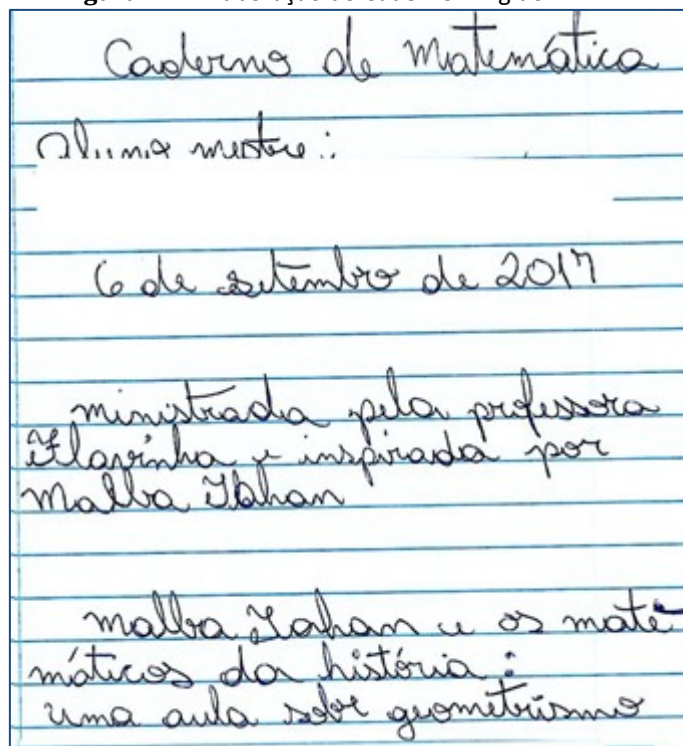 Caderno de Matemática
Aluno mestre:
6 de setembro de 2017
ministrada pela professora
Flavinha e inspirada por
Malba Tahan
malba Tahan e os mate
máticos da história:
uma aula sobre geometrismo